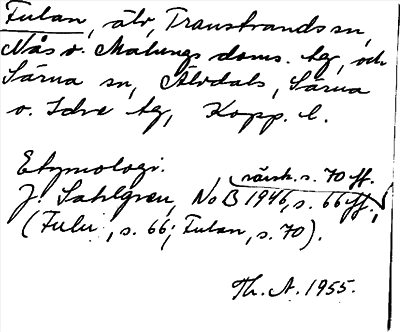 Fulan, älv, Transtrands sn,
Nås o. Malungs doms. hg, och
Särna sn, Älvdals, Särna
o. Idre hg, Kopp. l.
Etymologi.
särsk. s. 70 ff.
J. Sahlgren, NoB 1946, s. 66 ff.,
(Fulu, s. 66; Fulan, s. 70).
Th. A. 1955.